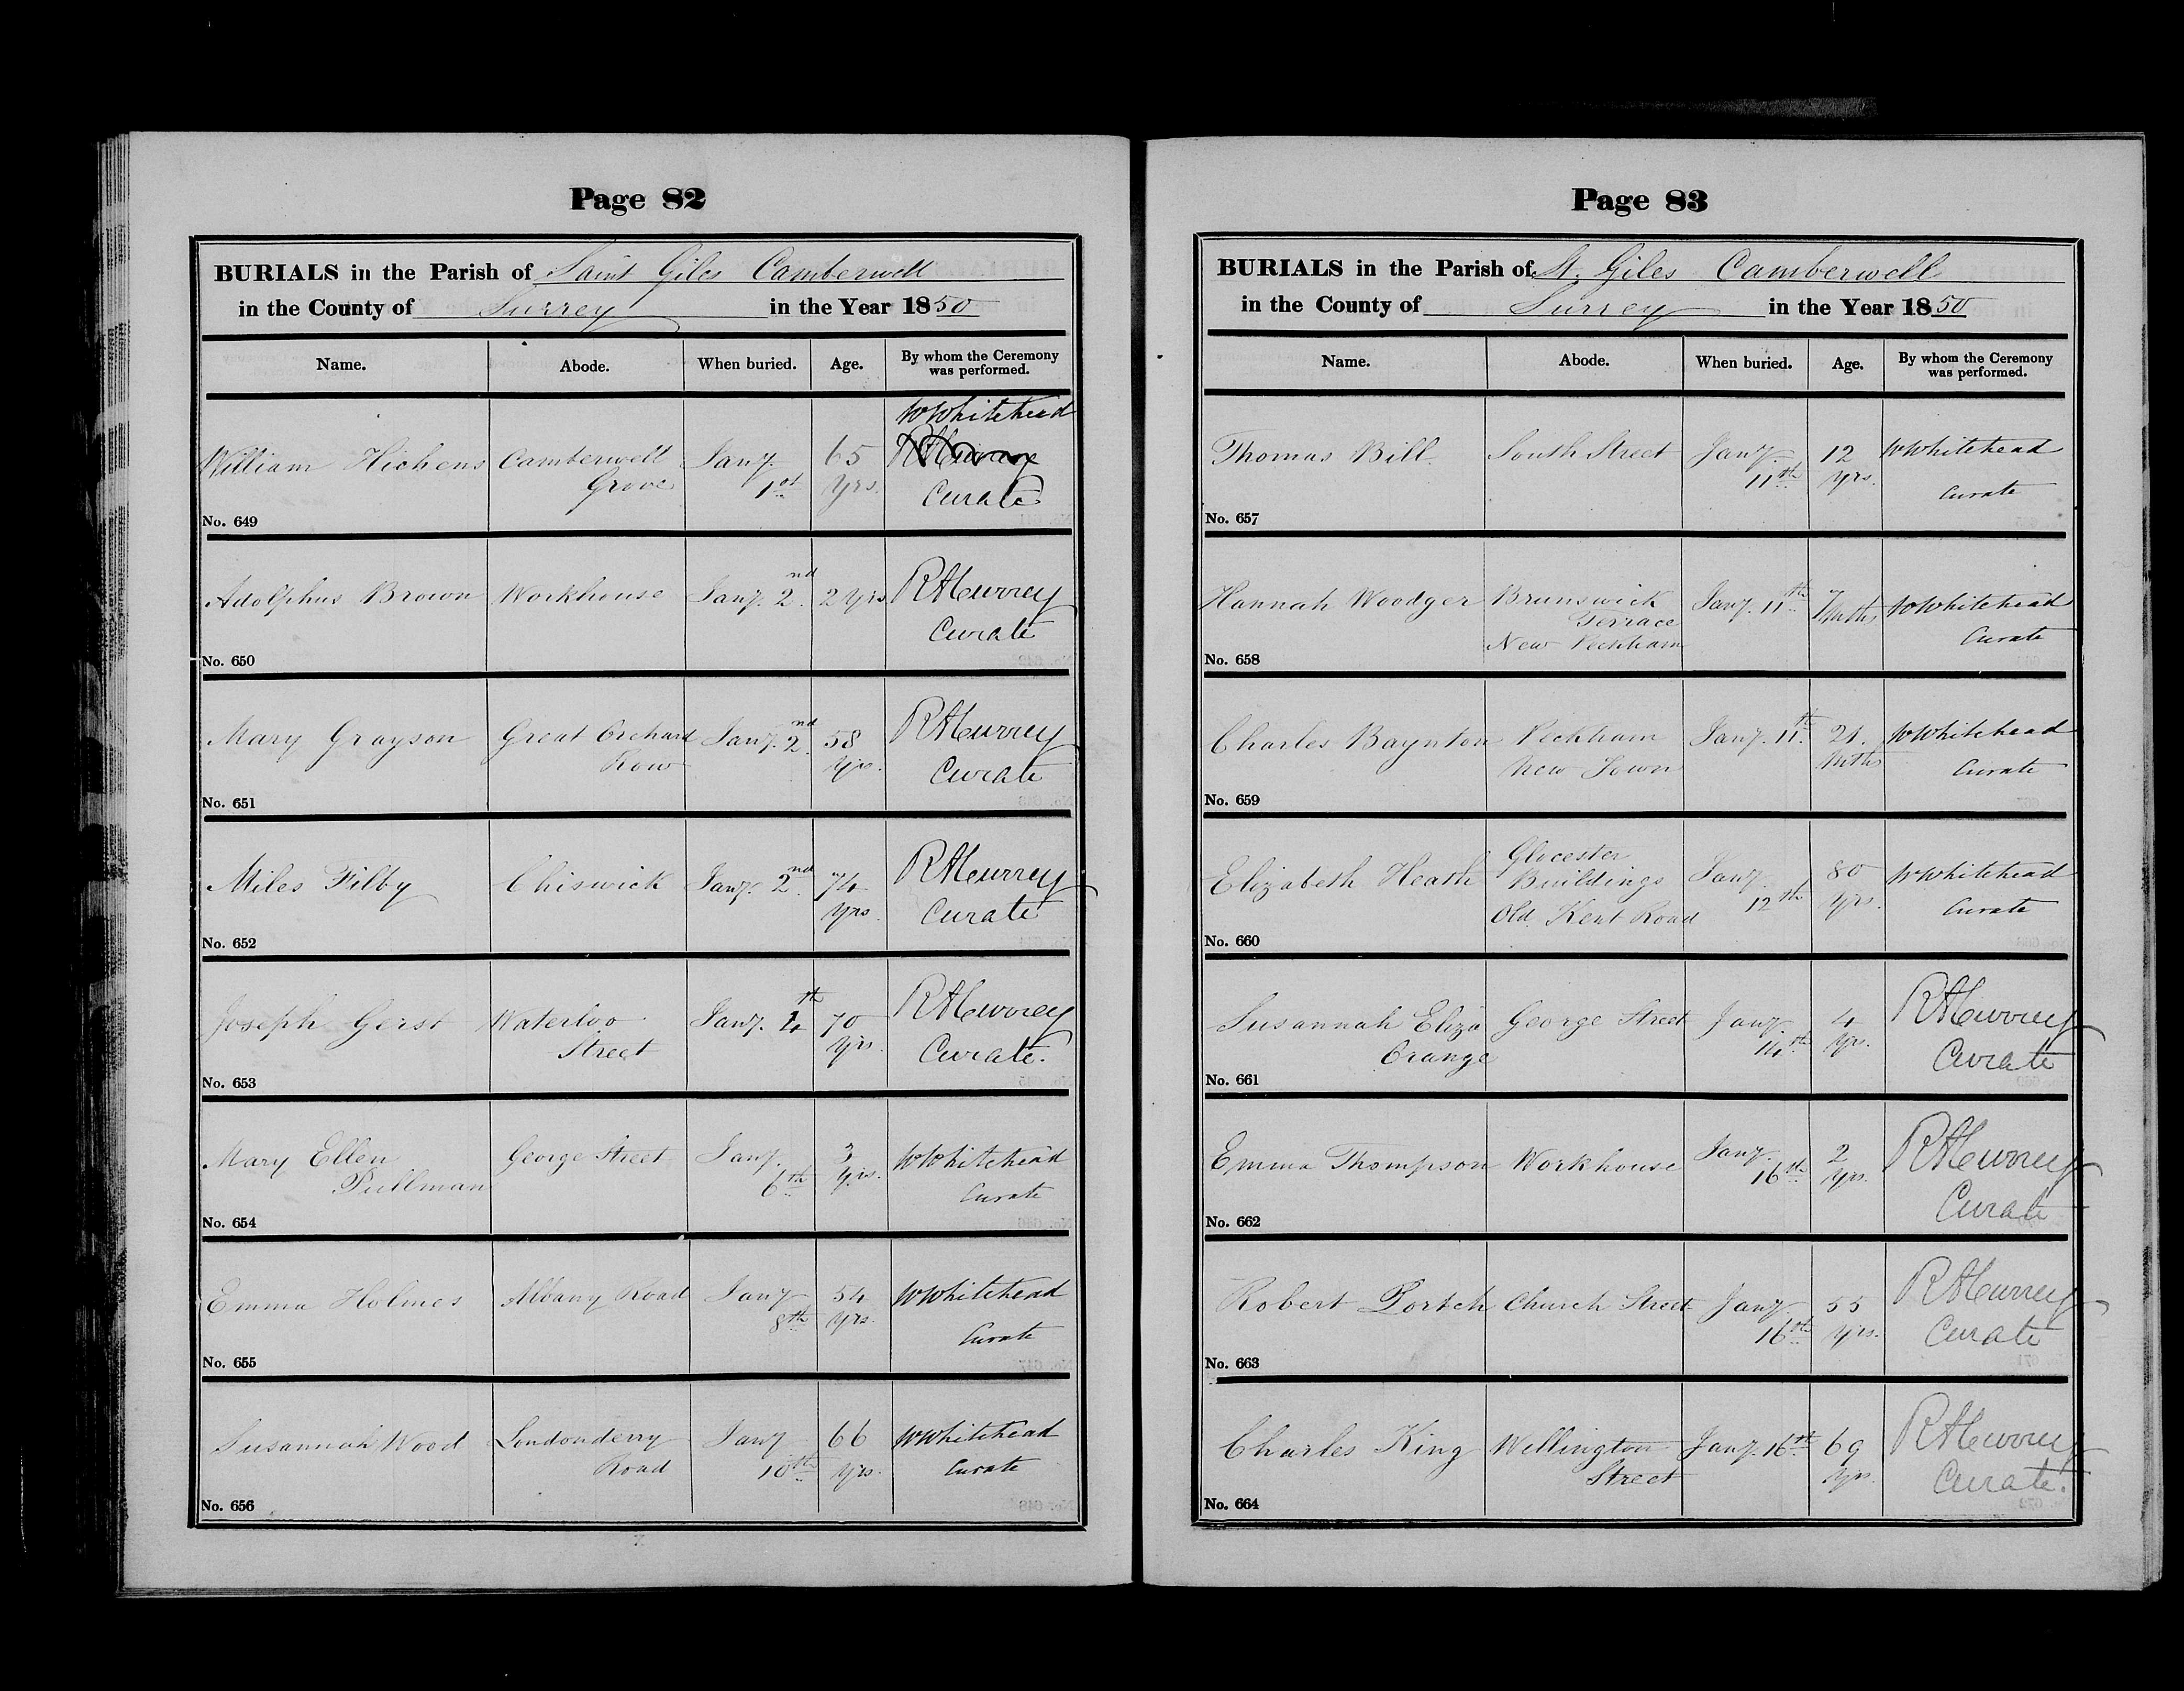 Page 82
BURIALS in the Parish of Saint Giles Camberwell
in the County of Surrey in the Year 1850
Name. Abode. When buried. Age. By whom the Ceremony was performed.
William Hichens Camberwell Grove Jany. 1st 65 yrs. WWhitehead Curate
No. 649
Adolphus Brown Workhouse Jany. 2nd 2 yrs RMurrey Curate
No. 650
Mary Grayson Great Orchard Row Jany. 2nd 58 yrs. RMurrey Curate
No. 651
Miles Filby Chiswick Jany. 2nd 74 yrs. RMurrey Curate
No. 652
Joseph Gerst Waterloo Street Jany. 4th 70 yrs. RMurrey Curate.
No. 653
Mary Ellen Pullman George Street Jany. 6th 3 yrs. WWhitehead Curate
No. 654
Emma Holmes Albany Road Jany 8th 54 yrs. WWhitehead Curate
No. 655
Susannah Wood Londonderry Road Jany 10th 66 yrs. WWhitehead Curate
No. 656
Page 83
BURIALS in the Parish of St. Giles Camberwell
in the County of Surrey in the Year 1850
Name. Abode. When buried. Age. By whom the Ceremony was performed.
Thomas Bill. South Street Jany. 11th 12 yrs. WWhitehead Curate
No. 657
Hannah Woodger Brunswick Terrace New Peckham Jany. 11th 7 Mths WWhitehead Curate
No. 658
Charles Baynton Peckham New Town Jany. 11th 21. Mths WWhitehead Curate
No. 659
Elizabeth Heath Glocester Buildings Old. Kent Road Jany. 12th 80 yrs. WWhitehead Curate
No. 660
Susannah Eliza Orange George Street Jany. 14th 4 yrs. RMurrey Curate
No. 661
Emma Thompson Workhouse Jany. 16th 2 yrs. RMurrey Curate
No. 662
Robert Portch Church Street Jany. 16th 55 yrs. RMurrey Curate
No. 663
Charles King Wellington Street Jany. 16th 69 yrs. RMurrey Curate.
No. 664